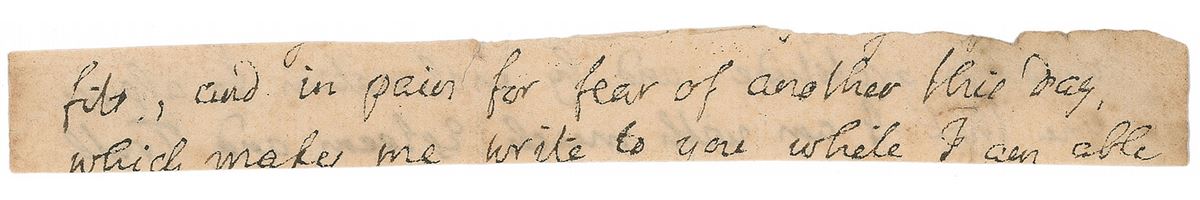 fits, and in pain for fear of another this day,
which makes me write to you while I am able